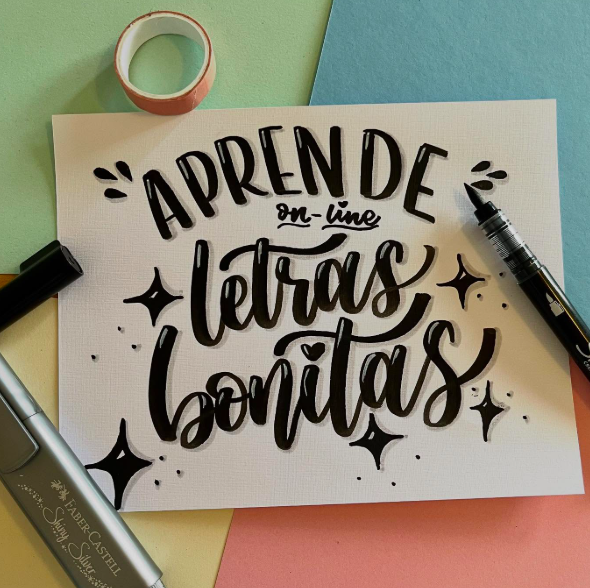 APRENDE
on-line
letras
bonitas
FABER-CASTELL
Shiny Silver